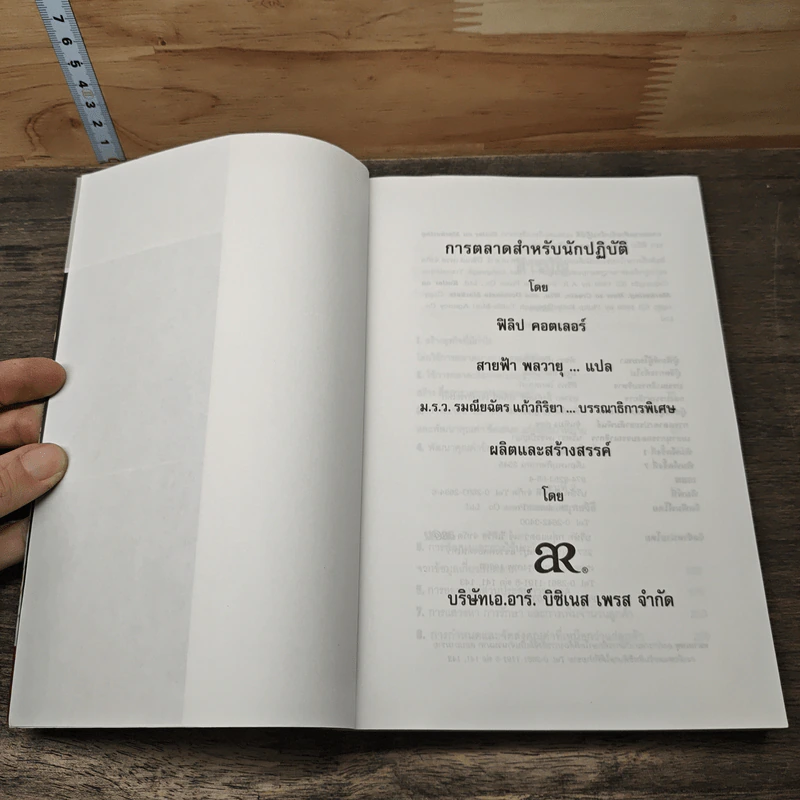 7 6 5 4 3 2 1
การตลาดสำหรับนักปฏิบัติ
โดย
ฟิลิป คอตเลอร์
สายฟ้า พลวายุ ... แปล
ม.ร.ว. รมณียฉัตร แก้วกิริยา ... บรรณาธิการพิเศษ
ผลิตและสร้างสรรค์
โดย
aR®
บริษัทเอ.อาร์. บิซิเนส เพรส จำกัด